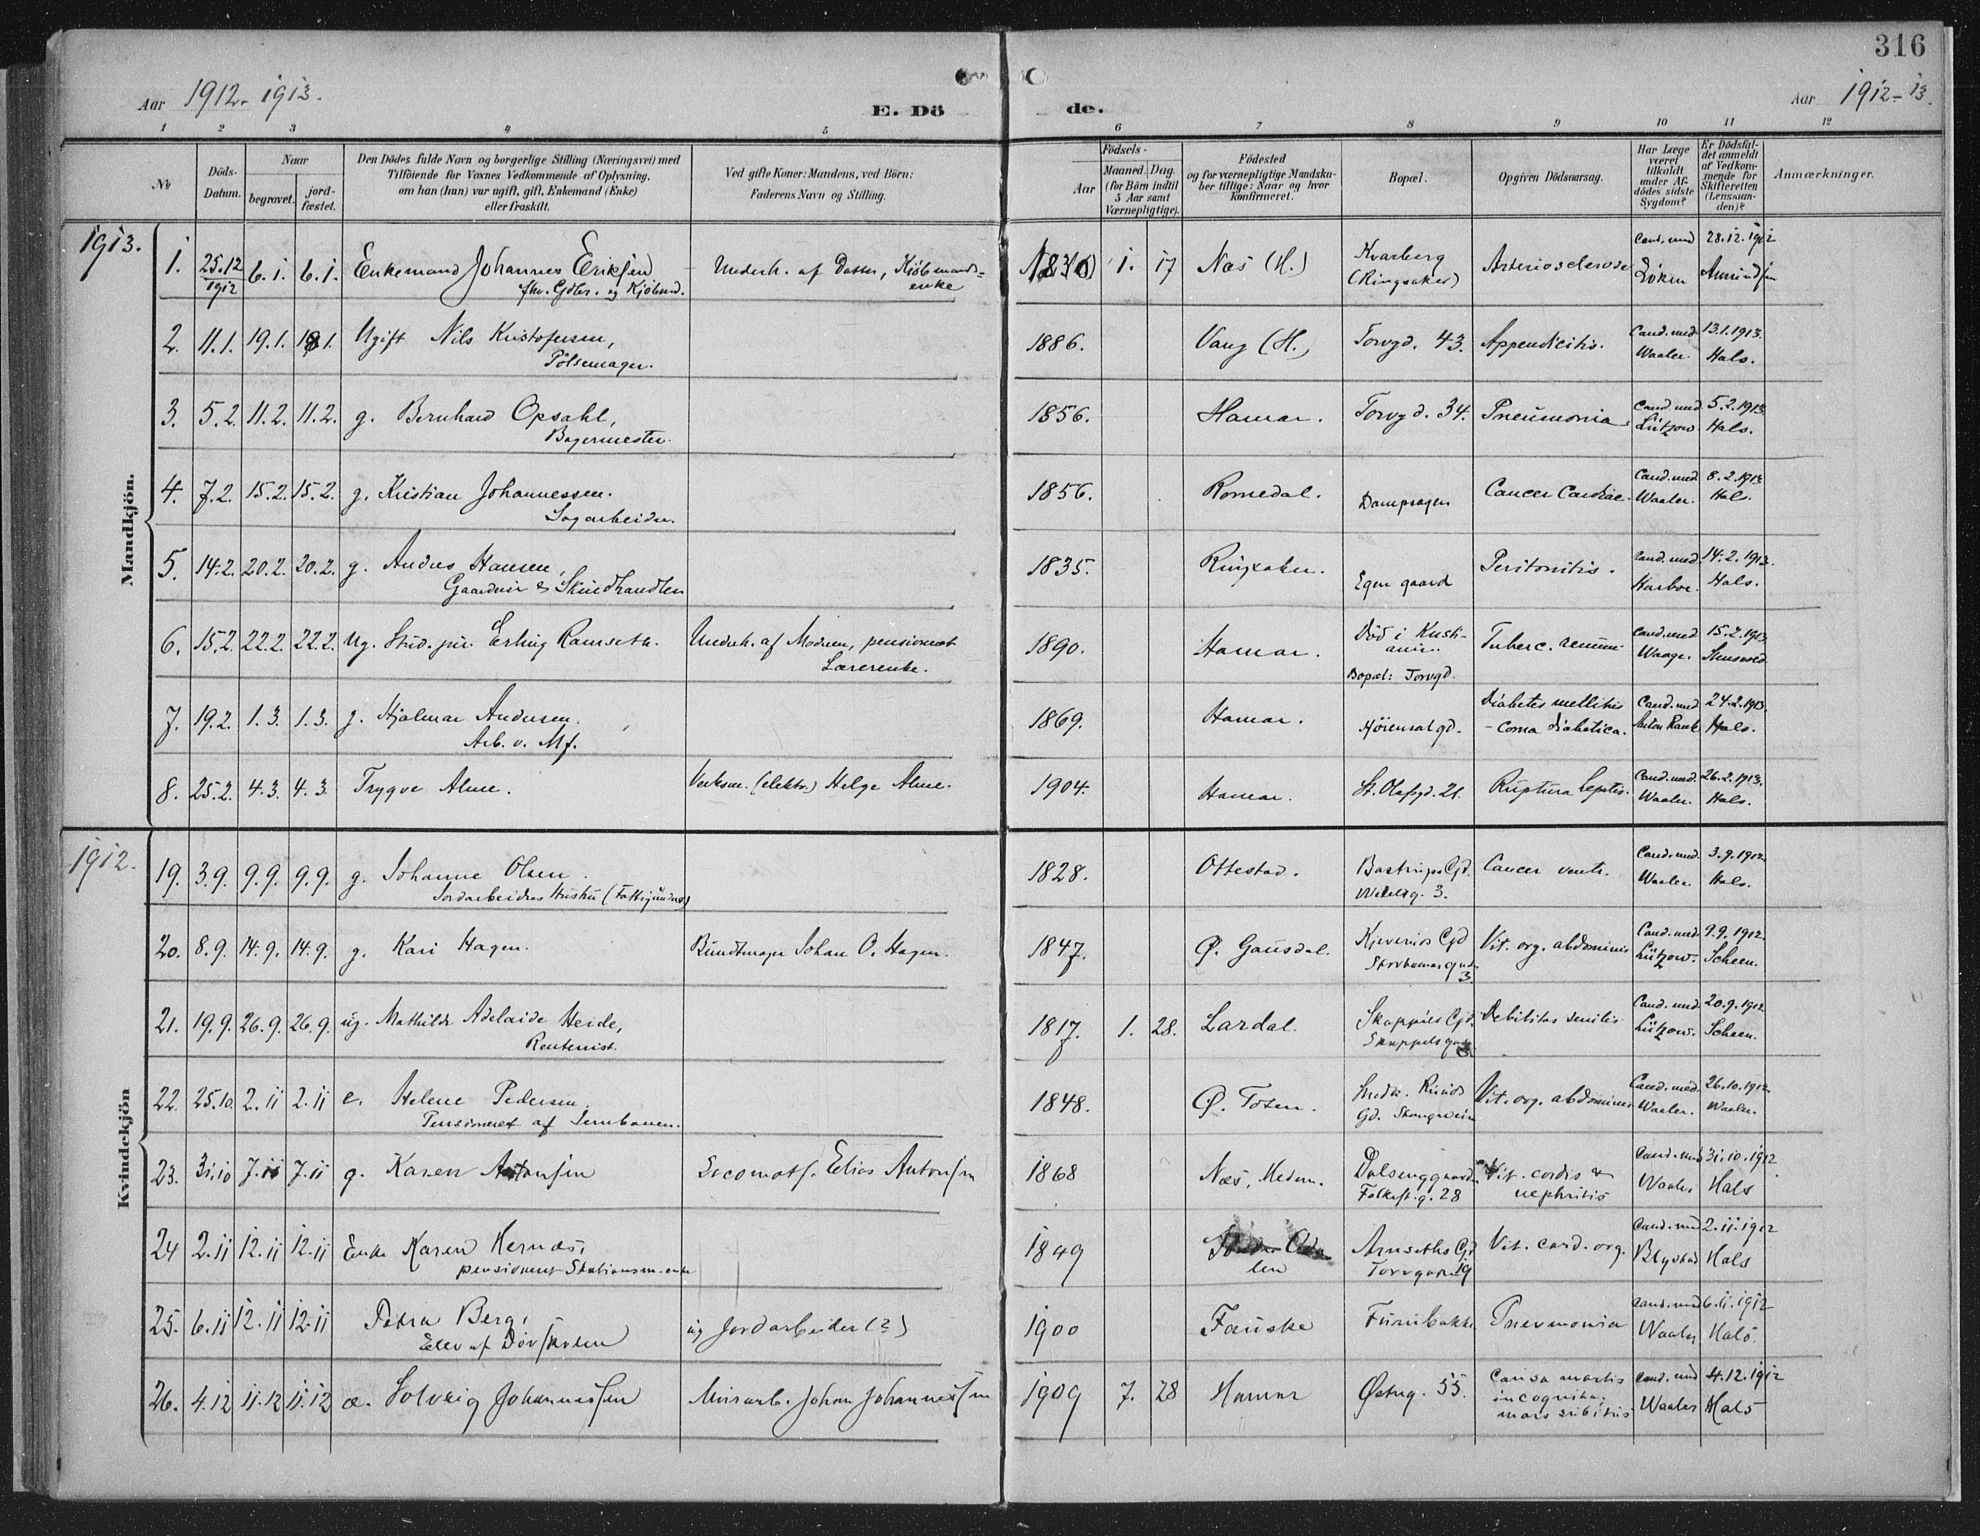 316
Aar 1912-1913.
E. Dö
de.
Aar 1912-13.
1 2 3 4 5 6 7 8 9 10 11 12
№
Döds-Datum.
Naar
begravet.
jord-fæstet.
Den Dödes fulde Navn og borgerlige Stilling (Næringsvei) med
Tilföiende for Voxnes Vedkommende af Oplysning,
om han (hun) var ugift, gift, Enkemand (Enke)
eller fraskilt.
Ved gifte Koner: Mandens, ved Börn:
Faderens Navn og Stilling.
Födsels-
Aar
Maaned. Dag.
(for Börn indtil
5 Aar samt
Værnepligtige).
Födested
og for værnepligtige Mandska-
ber tillige: Naar og hvor
Konfirmeret.
Bopæl.
Opgiven Dödsaarsag.
Har Læge
været
tilkaldt
under Af-
dödes sidste
Sygdom?
Er Dödsfal-
det anmeldt
af Vedkom-
mende for
Skifteretten
(Lensman-
den)?
Anmærkninger.
Mandkjön.
1913.
1. 25.12 1912 6.1. 6.1. Enkemand Johannes Eriksen
fhv. Gdbr. og Kjøbmd.
Underh. af Datter, Kjøbmands-
enke
1836 1. 17 Næs (H.) Kvarberg
(Ringsaker) Arteriosclerose Cand. med
Løken 28.12.1912
Amundsen
2. 11.1. 19.1. 181. Ugift Nils Kristofersen,
Pølsemager.
1886. Vang (H.) Torvgd. 43. Appendicitis. Cand. med
Waaler. 13.1.1913.
Hals.
3. 5.2. 11.2. 11.2. g. Bernhard Opsahl,
Bagermester.
1856. Hamar. Torvgd. 34. Pneumonia Cand. med
Lützow 5.2.1913
Hals.
4. 7.2. 15.2. 15.2. g. Kristian Johannessen.
Sagarbeider.
1856. Romedal. Dampsagen Cancer Cardiae. Cand. med
Waaler. 8.2.1913
Hals.
5. 14.2. 20.2. 20.2. g. Anders Hansen,
Gaardeier & Skindhandler
1835. Ringsaker. Egen gaard Peritonitis. Cand. med.
14.2.1913.
Hals.
6. 15.2. 22.2. 22.2. Ug. Stud. jur. Erling Ramseth. Underh. af Modren, pensioneret
Lærerenke.
1890. Hamar. Død i Kristi-
ania.
Bopæl: Torvgd. Tuberc. renum Cand. med
Waage. 15.2.1913
7. 19.2. 1.3. 1.3. g. Hjalmar Andersen.
Arb. v. Mf.
1869. Hamar. Diabetes mellitus
- coma diabetica. Cand. med
Anton Raabe 24.2.1913.
Hals.
8. 25.2. 4.3. 4.3. Trygve Alme. Verksm. (elektr.) Helge Alme.
1904. Hamar. St. Olafsgd. 21. Ruptura hepatis. Cand. med.
Waaler. 26.2.1913.
Hals.
Kvindekjön
1912.
19. 3.9. 9.9. 9.9. g. Johanne Olsen.
Jordarbeiders Hustru (Fattigunderst)
1828. Ottestad. Bastrups Gd.
3. Cancer ventr. Cand. med.
Waaler. 3.9.1912.
Hals.
20. 8.9. 14.9. 14.9. g. Kari Hagen. Bundtmager Johan O. Hagen.
1847. Ø. Gausdal. Kjeverus Gd
3. Vit. org. abdominis Cand. med
Lützow. 9.9.1912.
Scheen.
21. 19.9. 26.9. 26.9. ug. Mathilde Adelaide Heide,
Rentenist.
1817. 1. 28. Lardal. Skappels Gd.
Skappelsgade Debilitas senilis Cand. med
Lützow. 20.9.1912
Scheen.
22. 25.10. 2.11 2.11 e. Helene Pedersen.
Pensioneret af Jernbanen.
1848. Ø. Toten. Gd. Vit. org. abdominis Cand. med.
Waaler. 26.10.1912.
Waaler.
23. 31.10 7.11 7.11 g. Karen Antonsen Locomotf. Elias Antonsen
1868 Næs, Hedem. Dalsenggaarden
Folkest.g. 28 Vit. cordis &
nephritis Cand. med
Waaler 31.10.1912
Hals
24 2.11 12.11 12.11 Enke Karen Hernæs,
pensioneret Stationsm.enke
1849 len Arnseths Gd
Torvgaten 19 Vit. card. org. Cand. med
Blystad 2.11.1912
Hals
25. 6.11 12.11 12.11 Petra Berg,
Elev af Døvskolen ug Jordarbeider (?)
1900 Fauske Furubakke Pnevmonia Cand. med
Waaler 6.11.1912
Hals.
26. 4.12 11.12 11.12 æ. Solveig Johannessen Murarb. Johan Johannessen
1909 7. 28 Hamar Østreg. 55. Causa mortis
incognita;
mors subitus Cand. med
Waaler 4.12.1912
Hals